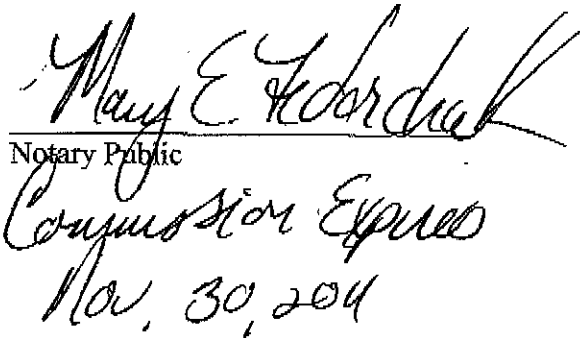 Mary E. Fedorchak
Notary Public
Commission Expires
Nov. 30, 2011